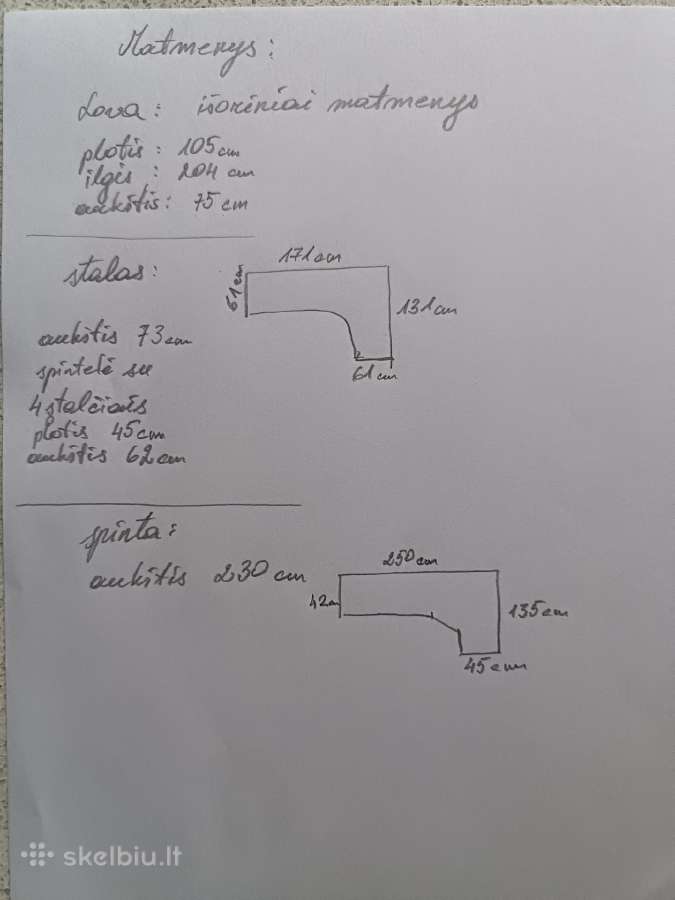 Matmenys:
Lova: išoriniai matmenys
plotis: 105cm
ilgis: 204 cm
aukštis: 75 cm
stalas:
171cm
61cm
131cm
61cm
aukštis 73cm
spintelė su
4 stalčiais
plotis 45cm
aukštis 62cm
spinta:
aukštis 230 cm
250cm
42cm
135cm
45cm
skelbiu.lt